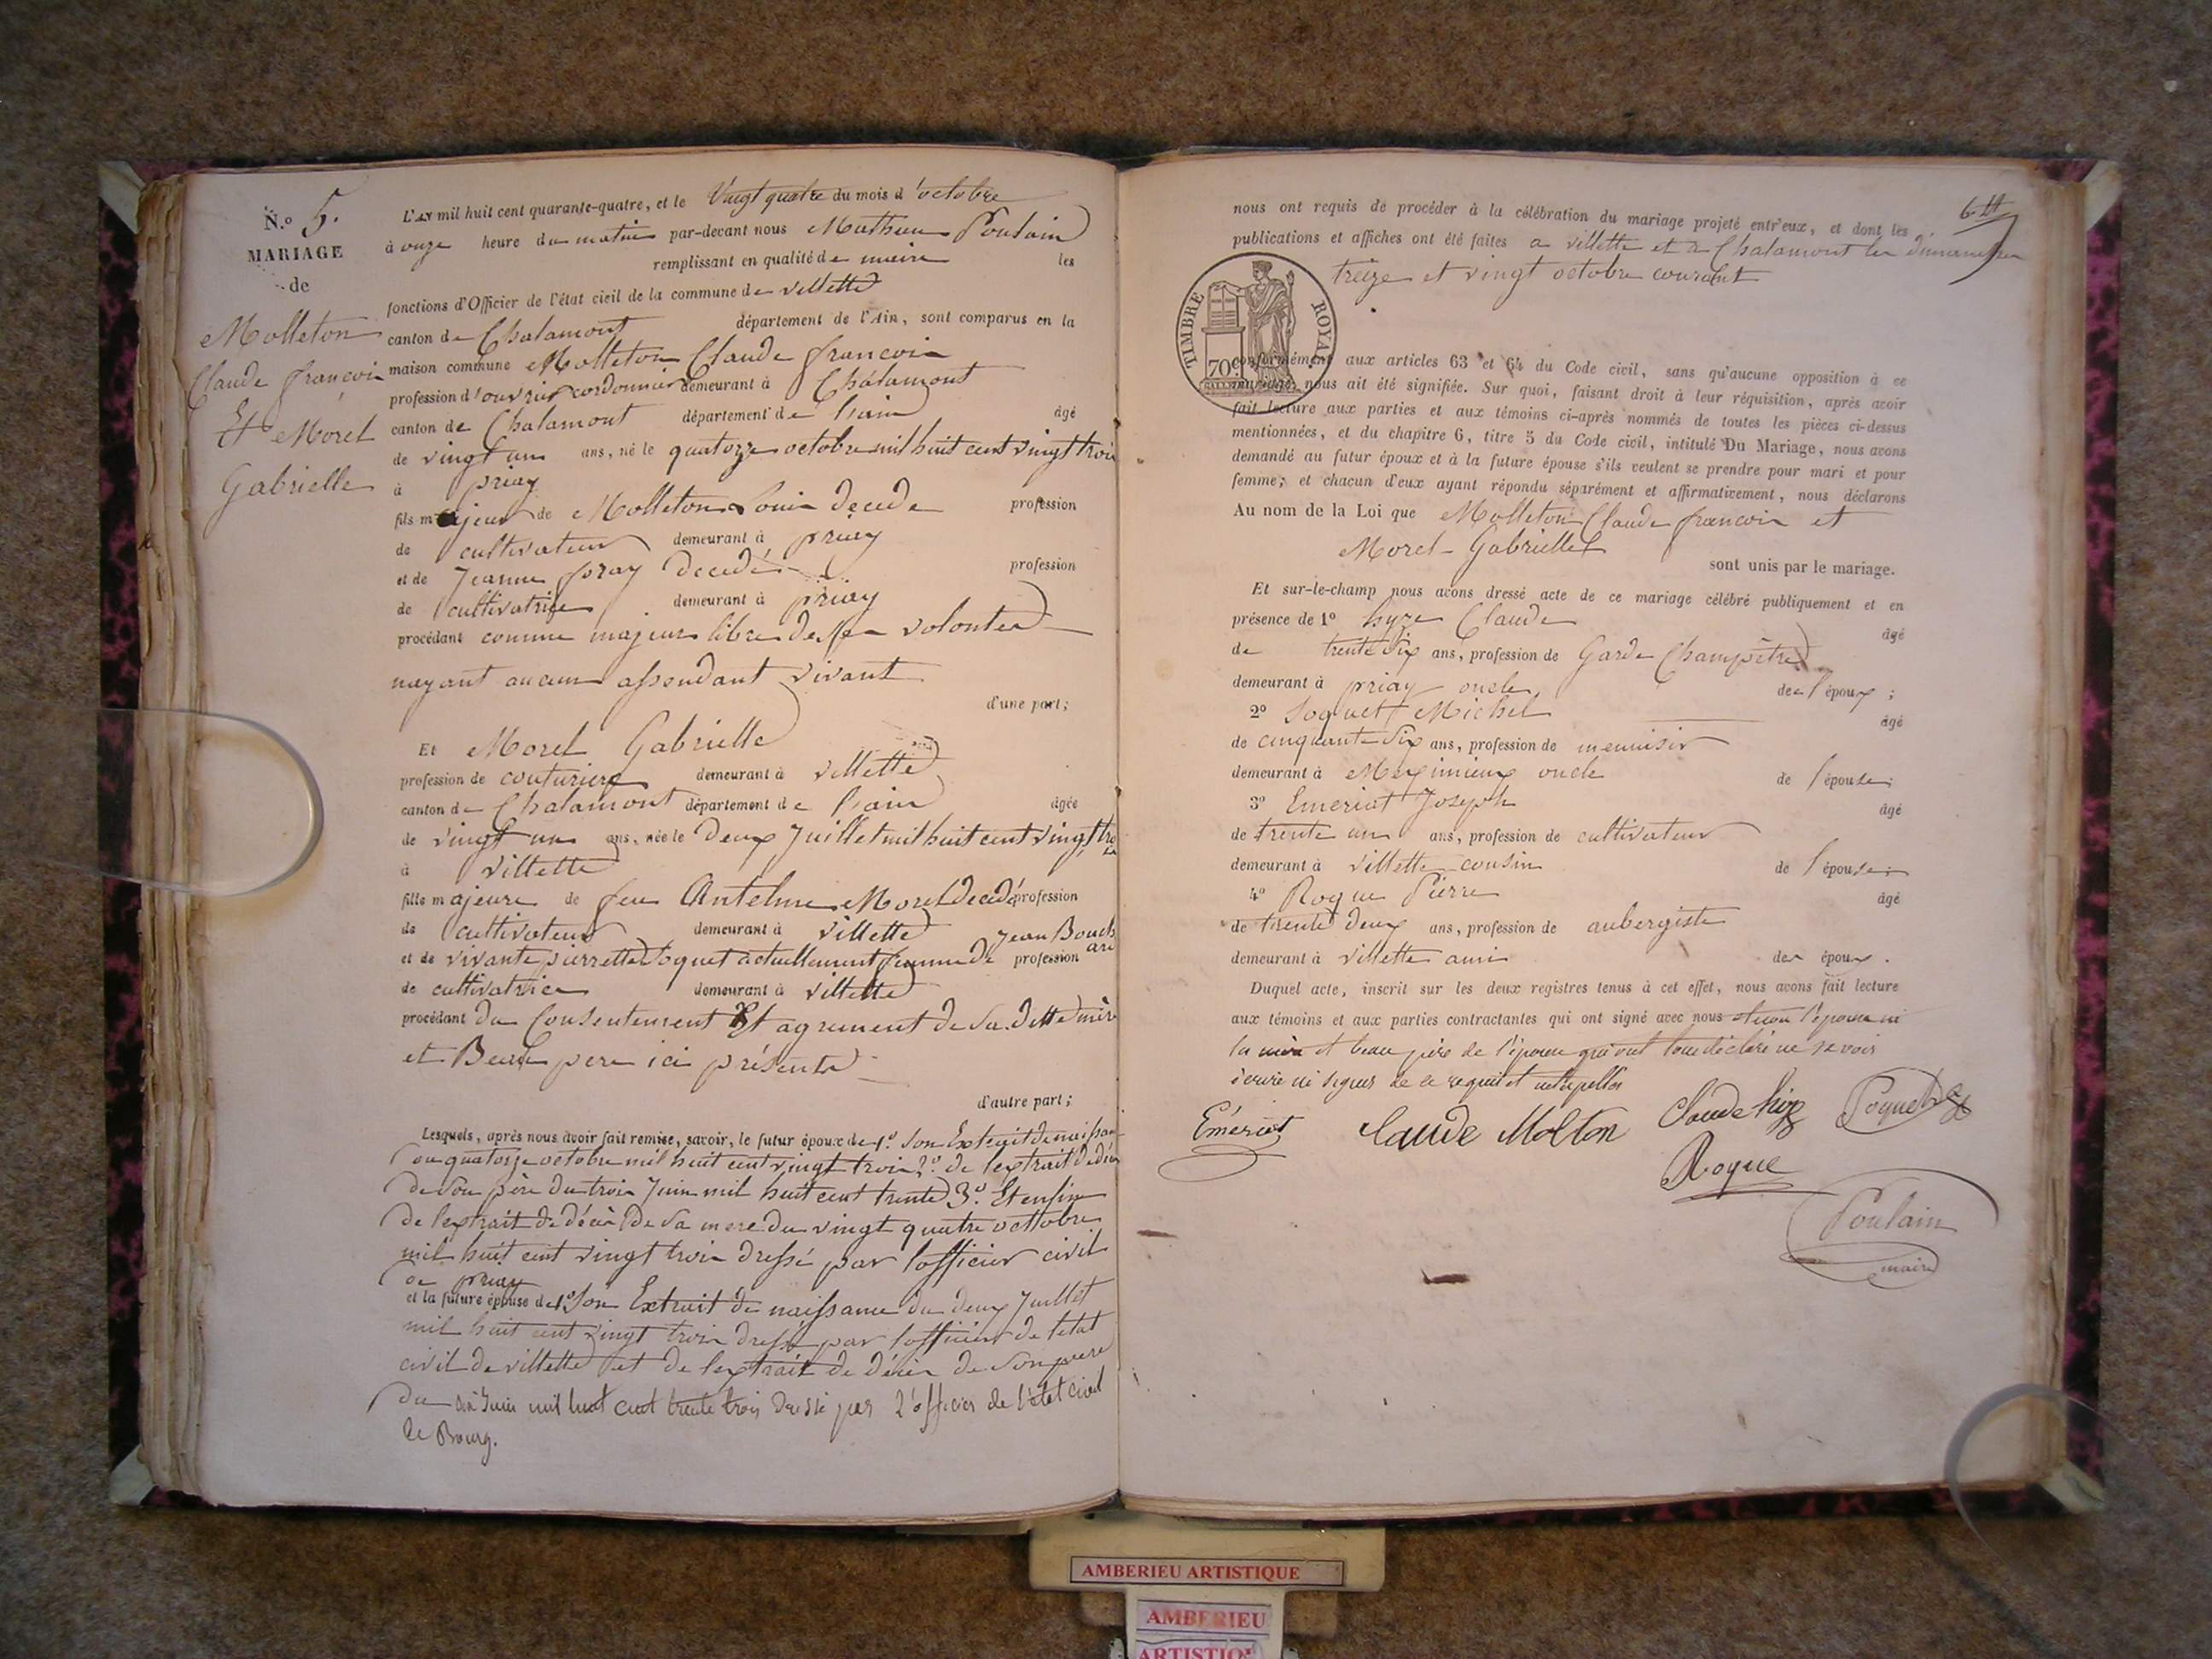 N.º 5.
MARIAGE
de
Molleton
Claude françois
Et Morel
Gabrielle
L'an mil huit cent quarante-quatre, et le Vingt quatre du mois d'octobre
à onze heure du matin par-devant nous Mathieu Poulain
remplissant en qualité de maire les
fonctions d'Officier de l'état civil de la commune de villette
canton de Chalamont département de l'Ain, sont comparus en la
maison commune Molleton Claude francois
profession d'ouvrier cordonnier demeurant à Chalamont
canton de Chalamont département de l'ain âgé
de vingt un ans, né le quatorze octobre mil huit cent vingt trois
à priay
fils majeur de Molleton Louis decede profession
de cultivateur demeurant à priay
et de Jeanne foray decedé profession
de cultivatrice demeurant à priay
procédant comme majeur libre de ses volontes
nayant aucun assendant vivant
d'une part;
Et Morel Gabrielle
profession de couturiere demeurant à villette
canton de Chalamont département de l'ain âgée
de vingt un ans, née le deux Juillet mil huit cent vingt trois
à villette
fille majeure de feu Antelme Morel decedé profession
de cultivateur demeurant à villette
et de vivante pierrette Soquet actuellement femme de Jean Bouchard profession
de cultivatrice demeurant à villette
procédant du Consentement Et agrement de sa ditte mère
et Beau pere ici présents
d'autre part;
Lesquels, après nous avoir fait remise, savoir, le futur époux de 1º son Extrait de naissance
du quatorze octobre mil huit cent vingt trois 2º de lextrait de décès
de son père du trois Juin mil huit cent trente 3º Et enfin
de lextrait de décès de sa mere du vingt quatre octtobre
mil huit cent vingt trois dressé par lofficier civil
de priay
et la future épouse de 1º son Extrait de naissance du deux Juillet
mil huit cent vingt trois dressé par lofficier de letat
civil de villette et de lextrait de décès de son pere
du dix Juin mil huit cent trente trois dressé par l'officier de l'état civil
de Bourg.
nous ont requis de procéder à la célébration du mariage projeté entr'eux, et dont les
publications et affiches ont été faites a villette et a Chalamont les dimanches
treize et vingt octobre courant
TIMBRE ROYAL
70c
conformément aux articles 63 et 64 du Code civil, sans qu'aucune opposition à ce
mariage nous ait été signifiée. Sur quoi, faisant droit à leur réquisition, après avoir
fait lecture aux parties et aux témoins ci-après nommés de toutes les pièces ci-dessus
mentionnées, et du chapitre 6, titre 5 du Code civil, intitulé Du Mariage, nous avons
demandé au futur époux et à la future épouse s'ils veulent se prendre pour mari et pour
femme; et chacun d'eux ayant répondu séparément et affirmativement, nous déclarons
Au nom de la Loi que Molleton Claude francois et
Morel Gabrielle
sont unis par le mariage.
Et sur-le-champ nous avons dressé acte de ce mariage célébré publiquement et en
présence de 1º hyze Claude âgé
de trente six ans, profession de Garde Champètre
demeurant à priay oncle de l'époux;
2º Soquet Michel âgé
de cinquante six ans, profession de menuisir
demeurant à Meximieux oncle de l'épouse;
3º Emeriat Joseph âgé
de trente un ans, profession de cultivateur
demeurant à villette cousin de l'épouse;
4º Roque Pierre âgé
de trente deux ans, profession de aubergiste
demeurant à villette ami des époux.
Duquel acte, inscrit sur les deux registres tenus à cet effet, nous avons fait lecture
aux témoins et aux parties contractantes qui ont signé avec nous sinon l'épouse ni
la mère et beau père de l'épouse qui ont tous déclaré ne savoir
écrire ni signer de ce requis et interpellés
Emériat Claude Molton Claude hize Soquet
Roque
Poulain
maire
AMBERIEU ARTISTIQUE
AMBERIEU
ARTISTIQUE